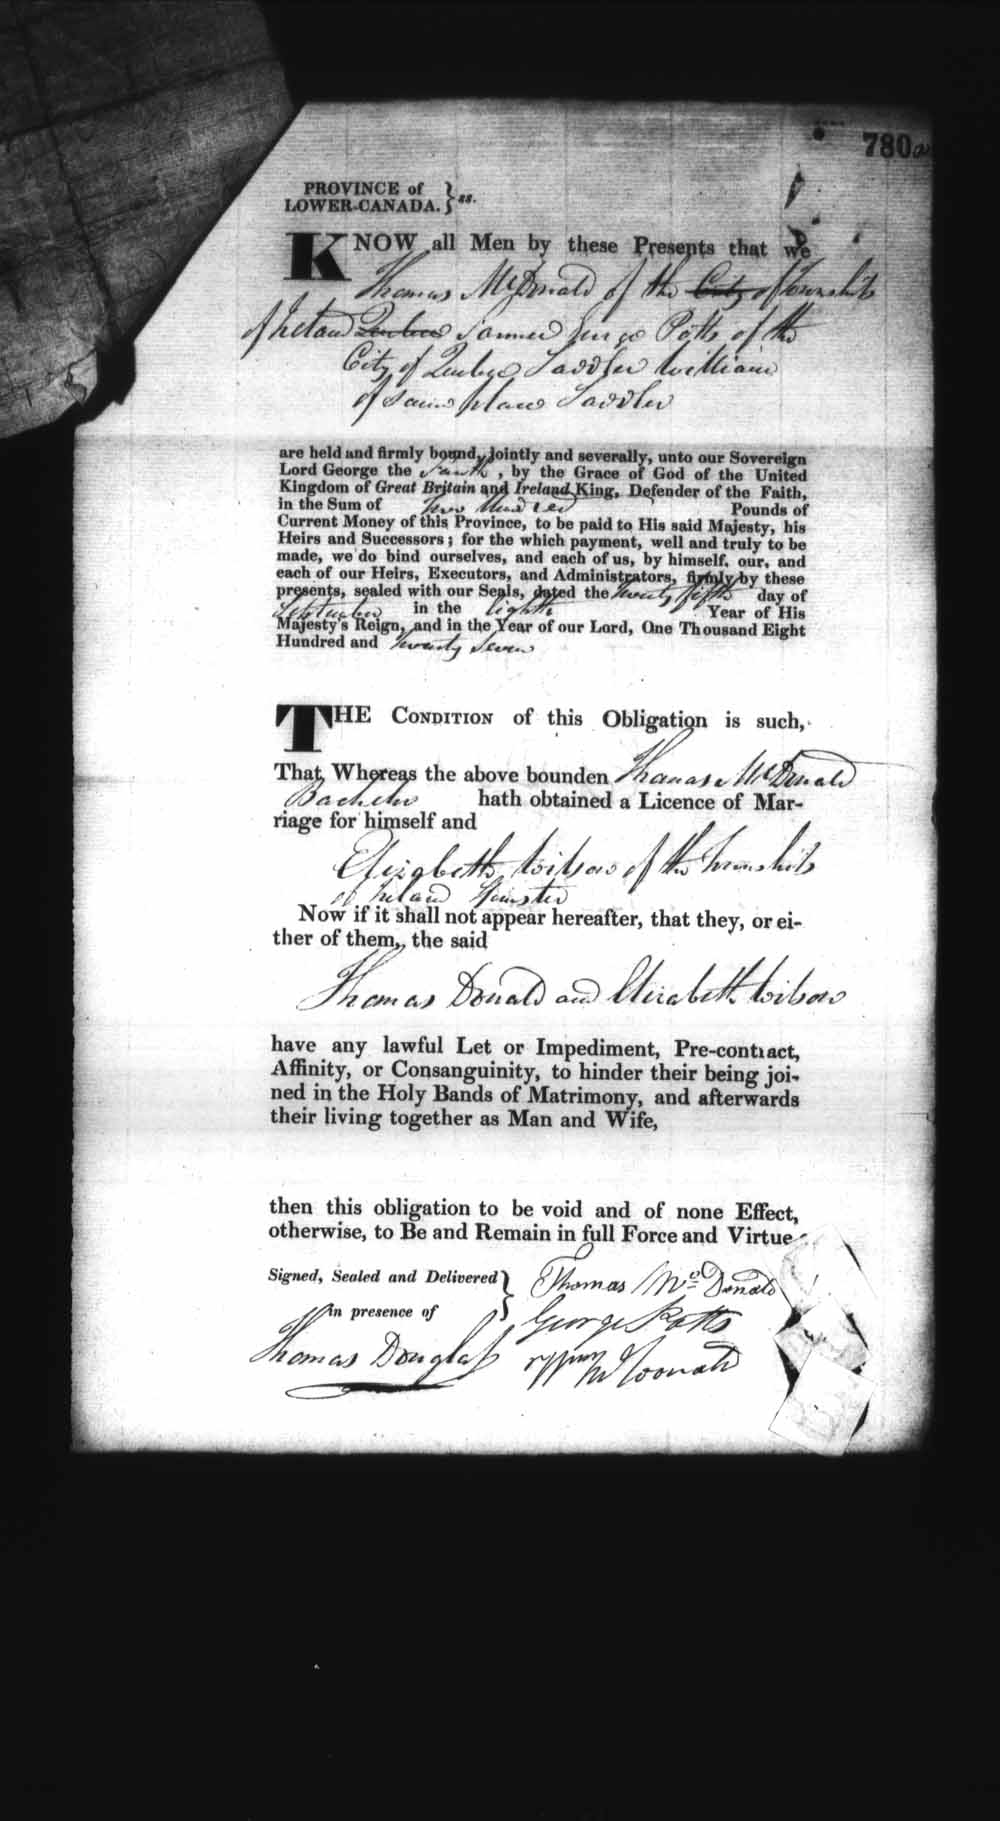 780a
PROVINCE of
LOWER-CANADA. } ss.
KNOW all Men by these Presents that we
Thomas McDonald of the City of Township
of Ireland Quebec Farmer George Potts of the
City of Quebec Saddler William
of same place Saddler
are held and firmly bound, jointly and severally, unto our Sovereign
Lord George the Fourth, by the Grace of God of the United
Kingdom of Great Britain and Ireland King, Defender of the Faith,
in the Sum of Two Hundred Pounds of
Current Money of this Province, to be paid to His said Majesty, his
Heirs and Successors; for the which payment, well and truly to be
made, we do bind ourselves, and each of us, by himself, our, and
each of our Heirs, Executors, and Administrators, firmly by these
presents, sealed with our Seals, dated the Twenty fifth day of
September in the Eighth Year of His
Majesty's Reign, and in the Year of our Lord, One Thousand Eight
Hundred and Twenty Seven
THE CONDITION of this Obligation is such,
That, Whereas the above bounden Thomas McDonald
Bachelor hath obtained a Licence of Mar-
riage for himself and
Elizabeth Wilson of the Township
of Ireland Spinster
Now if it shall not appear hereafter, that they, or ei-
ther of them, the said
Thomas Donald and Elizabeth Wilson
have any lawful Let or Impediment, Pre-contract,
Affinity, or Consanguinity, to hinder their being joi-
ned in the Holy Bands of Matrimony, and afterwards
their living together as Man and Wife,
then this obligation to be void and of none Effect,
otherwise, to Be and Remain in full Force and Virtue
Signed, Sealed and Delivered } Thomas McDonald
in presence of George Potts
Thomas Douglass Wm McDonald